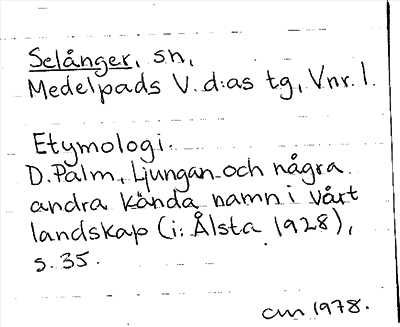 Selånger, sn,
Medelpads V. d:as tg, Vnr. 1.
Etymologi:
D. Palm, Ljungan och några
andra kända namn i vårt
landskap (i: Ålsta 1928),
s. 35.
cm 1978.